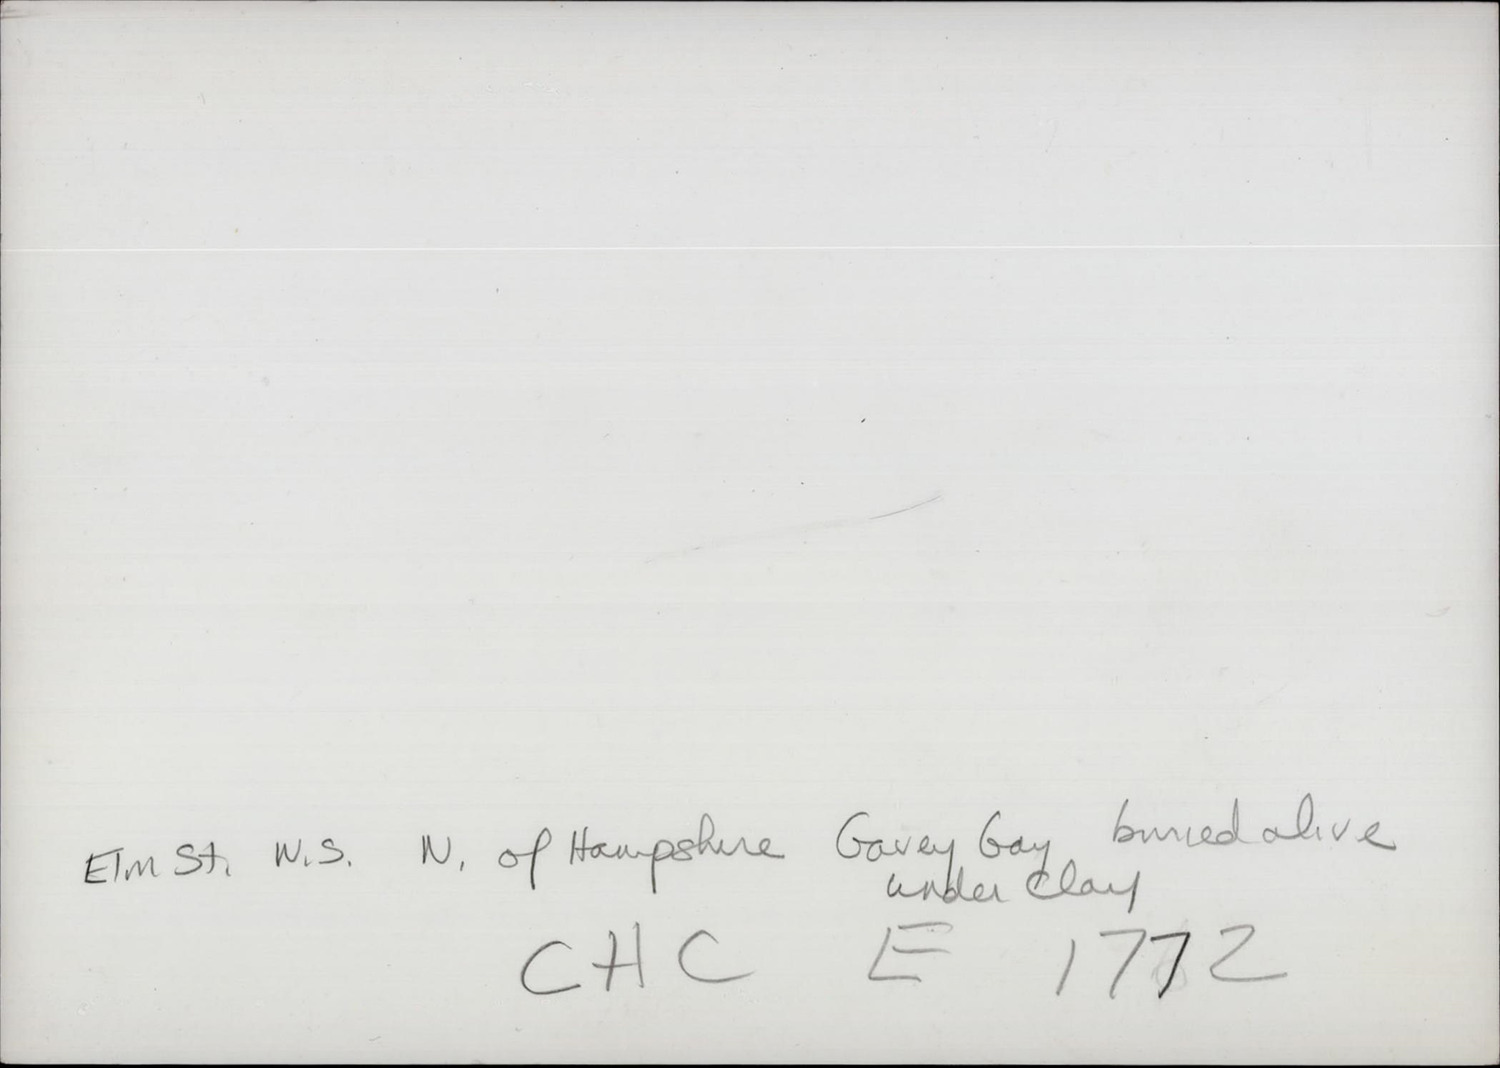 Elm St. W.S. N. of Hampshire Gavey Gay buried alive
under clay
CHC E 1772